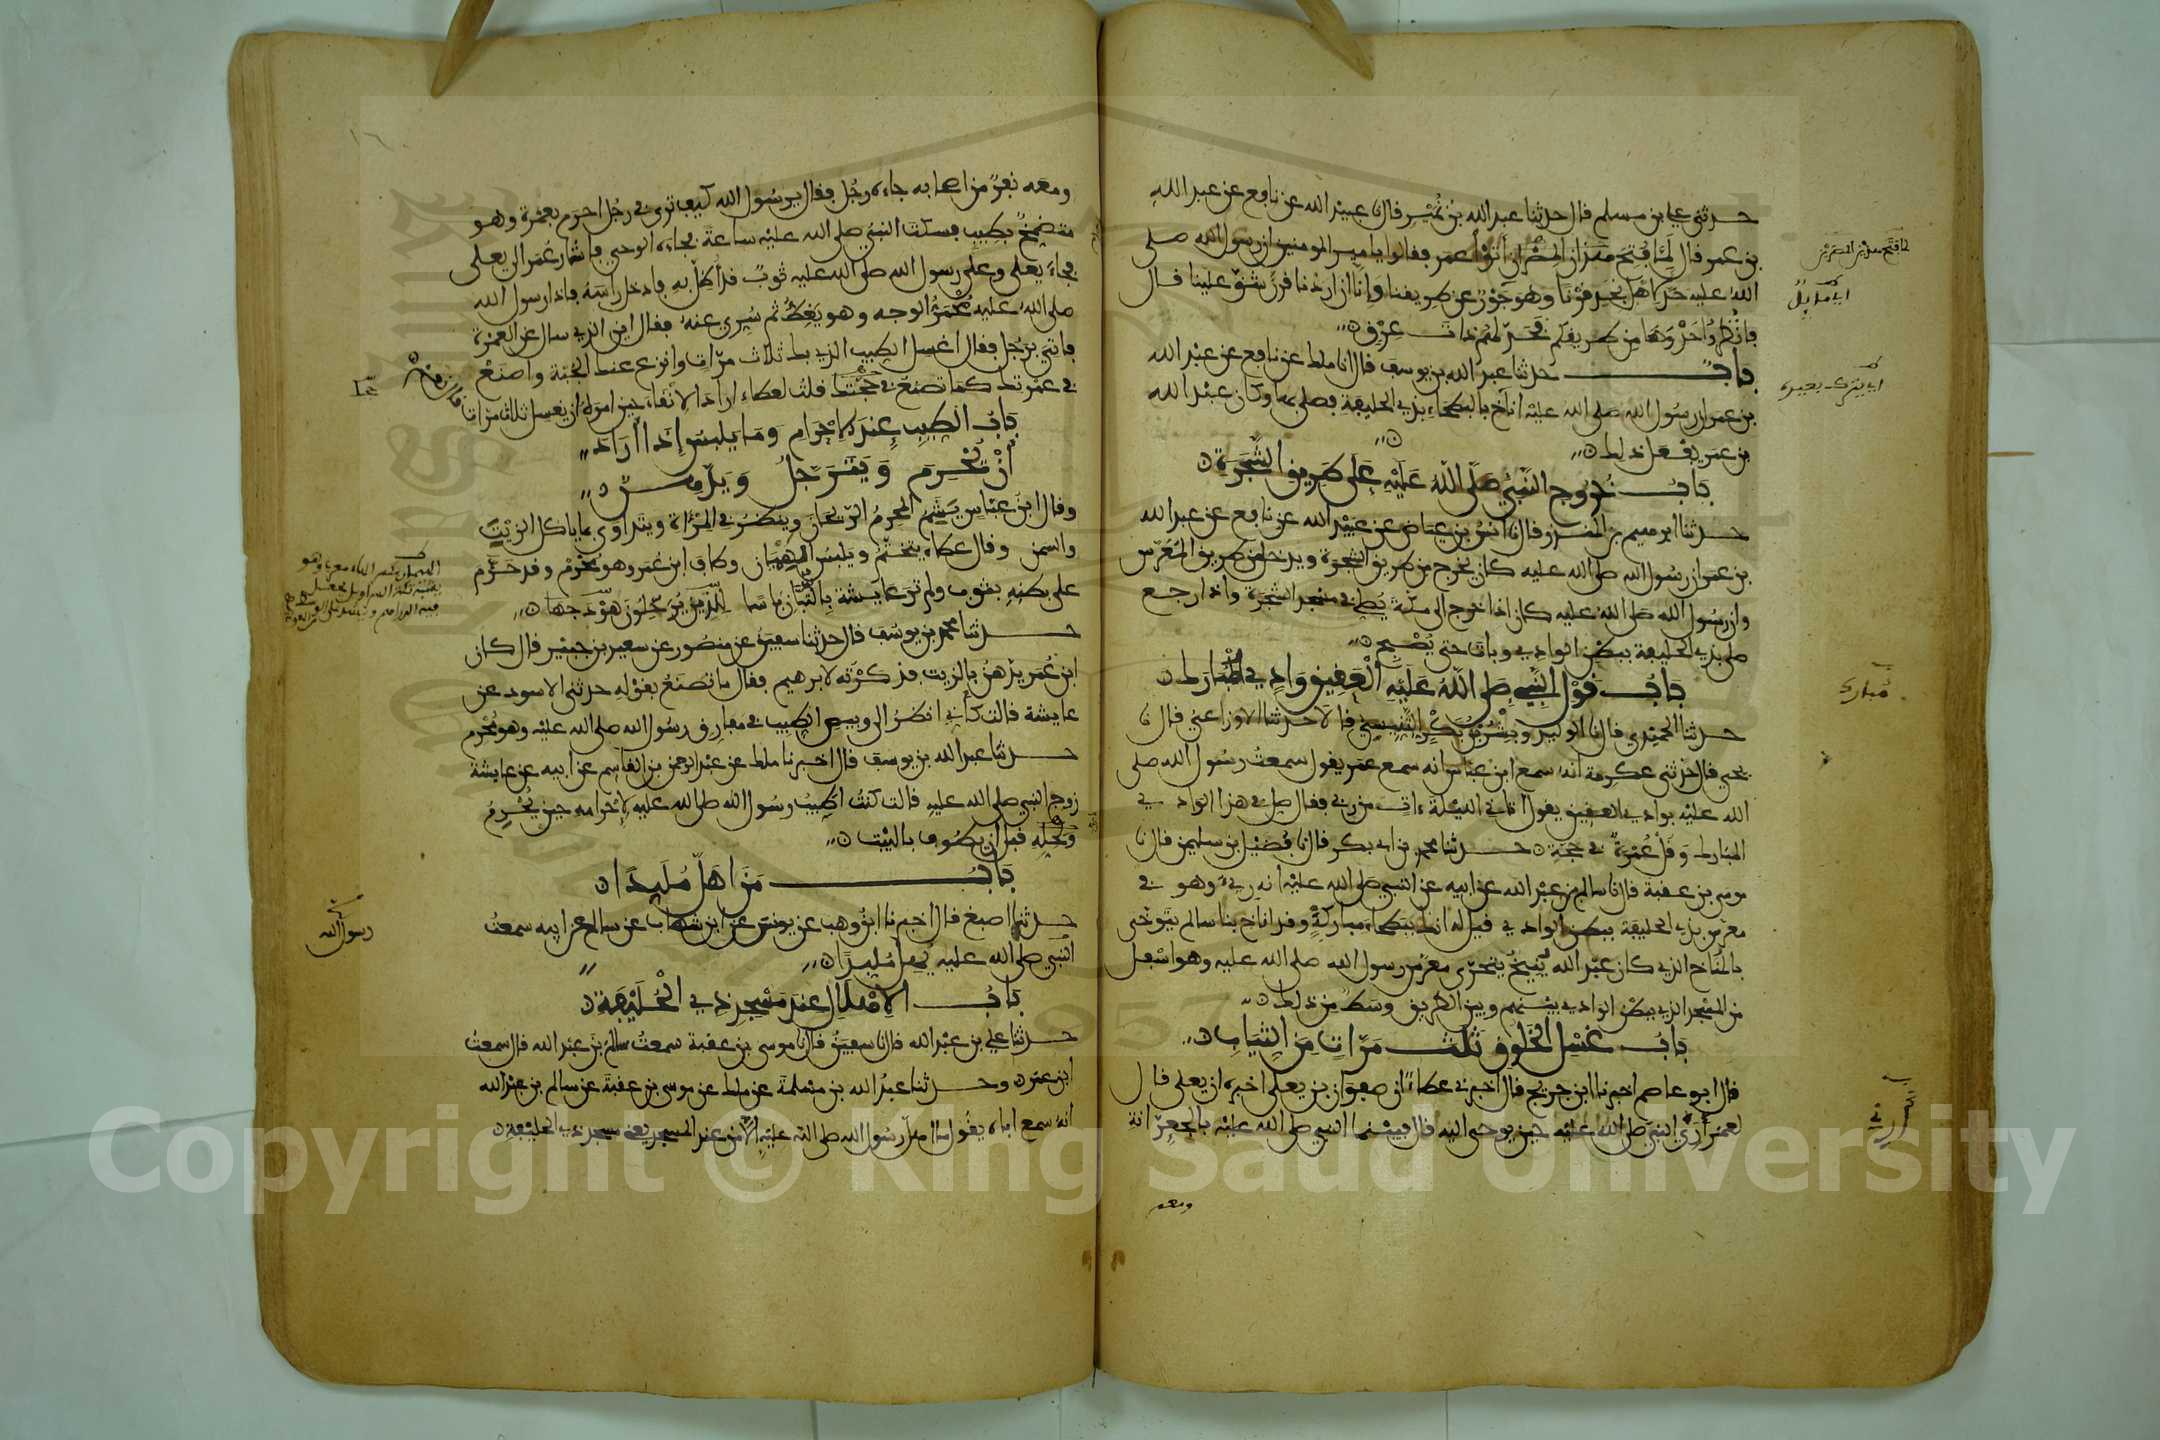 حدثني علي بن مسلم قال حدثنا عبد الله بن نمير قال نا عبيد الله عن نافع عن عبد الله
بن عمر قال لما فتح هذان المصران أتوا عمر فقالوا يا مير المومنين ان رسول الله صلى
الله عليه حد لاهل نجد قرنا وهو جور عن طريقنا وإنا ان اردنا قرن شق علينا قال
فانظروا حذوها من طريقكم فحد لهم ذات عرق
باب حدثنا عبد الله بن يوسف قال انا ملك عن نافع عن عبد الله
بن عمر ان رسول الله صلى الله عليه اناخ بالبطحاء بذي الحليفة فصلى بها وكان عبد الله
بن عمر يفعل ذلك
باب خروج النبي صلى الله عليه على طريق الشجرة
حدثنا ابرهيم بن المنذر قال نا انس بن عياض عن عبيد الله عن نافع عن عبد الله
بن عمر ان رسول الله صلى الله عليه كان يخرج من طريق الشجرة ويدخل من طريق المعرس
وان رسول الله صلى الله عليه كان اذا خرج الى مكة يصلي في مسجد الشجرة واذا رجع
صلى بذي الحليفة ببطن الوادي وبات حتى يصبح
باب قول النبي صلى الله عليه العقيق وادي المبارك
مبارك
حدثنا الحميدي قال نا الوليد وبشر بن بكر التنيسي قالا حدثنا الاوزاعي قال نا
يحيى قال حدثني عكرمة انه سمع ابن عباس انه سمع عمر يقول سمعت رسول الله صلى
الله عليه بوادي العقيق يقول اتاني الليلة ءات من ربي فقال صل في هذا الوادي
المبارك وقل عمرة في حجة حدثنا محمد بن ابي بكر قال نا فضيل بن سليمن قال نا
موسى بن عقبة قال نا سالم بن عبد الله عن ابيه عن النبي صلى الله عليه انه رىء وهو في
معرس بذي الحليفة ببطن الوادي قيل له انك ببطحاء مباركة وقد اناخ بنا سالم يتوخى
بالمناخ الذي كان عبد الله ينيخ يتحرى معرس رسول الله صلى الله عليه وهو اسفل
من المسجد الذي ببطن الوادي بينهم وبين الطريق وسط من ذلك
باب غسل الخلوق ثلث مرات من الثياب
قال ابو عاصم اخبرنا ابن جريج قال اخبرني عطاء ان صفوان بن يعلى اخبره ان يعلى قال
لعمر أرني النبي صلى الله عليه حين يوحى اليه قال فبينما النبي صلى الله عليه بالجعرانة
ومعه
ومعه نفر من اصحابه جاءه رجل فقال يرسول الله كيف ترى في رجل احرم بعمرة وهو
متضمخ بطيب فسكت النبي صلى الله عليه ساعة فجاءه الوحي فاشار عمر الى يعلى
فجاء يعلى وعلى رسول الله صلى الله عليه ثوب قد أظل به فادخل راسه فاذا رسول الله
صلى الله عليه محمر الوجه وهو يغط ثم سري عنه فقال اين الذي سال عن العمرة
فاتي برجل فقال اغسل الطيب الذي بك ثلاث مرات وانزع عنك الجبة واصنع
في عمرتك كما تصنع في حجتك قلت لعطاء اراد الانقاء حين امره ان يغسل ثلاث مرات
باب الطيب عند الاحرام وما يلبس إذا أراد
أن يحرم ويترجل ويدهن
وقال ابن عباس يشم المحرم الريحان وينظر في المرءاة ويتداوى بما ياكل الزيت
والسمن وقال عطاء يتختم ويلبس الهميان وطاف ابن عمر وهو محرم وقد حزم
على بطنه بثوب ولم تر عايشة بالتبان باسا للذين يرحلون هودجها
حدثنا محمد بن يوسف قال حدثنا سفين عن منصور عن سعيد بن جبير قال كان
ابن عمر يدهن بالزيت فذكرته لابرهيم فقال ما تصنع بقوله حدثني الاسود عن
عايشة قالت كأني انظر الى وبيص الطيب في مفارق رسول الله صلى الله عليه وهو محرم
حدثنا عبد الله بن يوسف قال اخبرنا ملك عن عبد الرحمن بن القاسم عن أبيه عن عايشة
زوج النبي صلى الله عليه قالت كنت اطيب رسول الله صلى الله عليه لإحرامه حين يحرم
ولحله قبل أن يطوف بالبيت
باب من اهل ملبدا
حدثنا اصبغ قال اخبرنا ابن وهب عن يونس عن ابن شهاب عن سالم عن ابيه سمعت
النبي صلى الله عليه يهل ملبدا
رسول الله
باب الإهلال عند مسجد ذي الحليفة
حدثنا علي بن عبد الله قال نا سفين قال نا موسى بن عقبة سمعت سالم بن عبد الله قال سمعت
ابن عمر وحدثنا عبد الله بن مسلمة عن ملك عن موسى بن عقبة عن سالم بن عبد الله
انه سمع اباه يقول ما اهل رسول الله صلى الله عليه الا من عند المسجد يعني مسجد ذي الحليفة
Copyright © King Saud University
1957